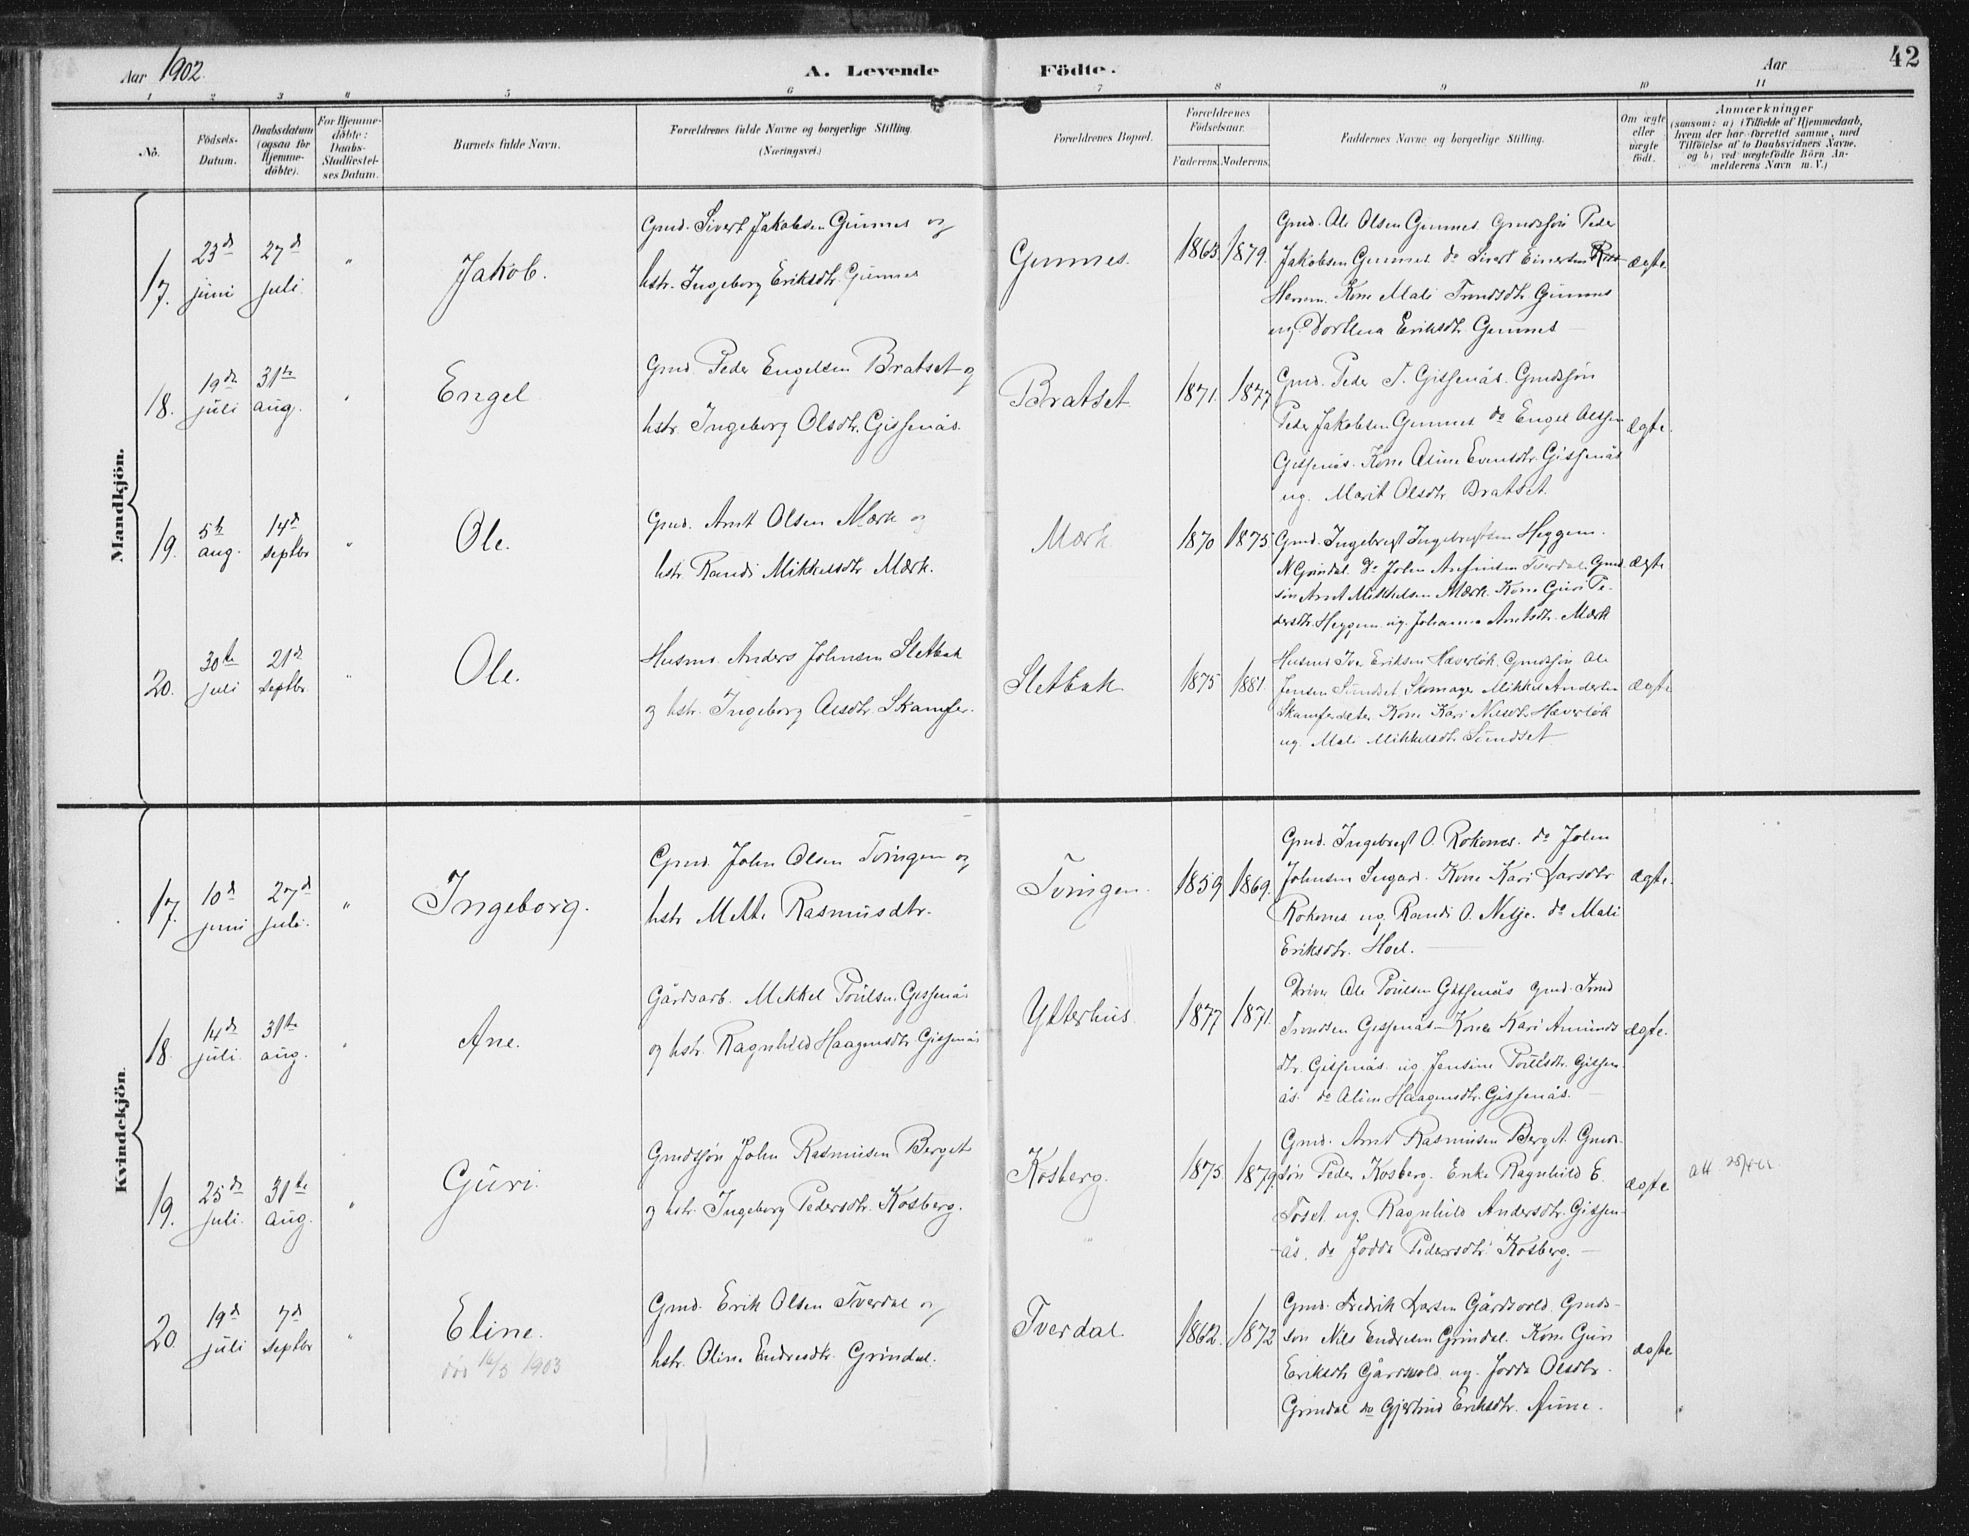 Aar 1902.
A. Levende Födte.
Aar
42
1 2 3 4 5 6 7 8 9 10 11
No.
Födsels-Datum.
Daabsdatum (ogsaa for Hjemme-döbte).
For Hjemme-döbte: Daabs-Stadfæstel-ses Datum.
Barnets fulde Navn.
Forældrenes fulde Navne og borgerlige Stilling.
(Næringsvei.)
Forældrenes Bopæl.
Forældrenes Födselsaar.
Faderens. Moderens.
Faddernes Navne og borgerlige Stilling.
Om ægte eller uægte födt.
Anmærkninger
(saasom: a) i Tilfælde af Hjemmedaab,
hvem der har forrettet samme, med
Tilföielse af to Daabsvidners Navne.
og b) ved uægtefödte Börn An-
melderens Navn m. V.)
Mandkjön.
17. 23de juni 27de juli. " Jakob.
Gmd. Sivert Jakobsen Gunnes og
hstr. Ingeborg Eriksdtr. Gunnes
Gunnes. 1863 1879.
Gmd. Ole Olsen Gunnes Gmdssøn Peder
Jakobsen Gunnes do Sivert Einertsen
Kone Mali Trondsdtr. Gunnes
ug. Dorthea Eriksdtr. Gunnes
ægte.
18. 19de juli 31te aug. " Engel
Gmd. Peder Engelsen Bratset og
hstr. Ingeborg Olsdtr. Gissenås.
Bratset 1871. 1877
Gmd. Peder T. Gissenås. Gmdssøn
Peder Jakobsen Gunnes do Engel
Gissenås. Kone Oline Evensdtr. Gissenås
ug. Marit Olsdtr Bratset.
ægte.
19. 5te aug. 14de septbr " Ole.
Gmd. Arnt Olsen Mærk og
hstr. Randi Mikkelsdtr Mærk.
Mærk 1870 1875
Gmd. Ingebregt Ingebregtsen Heggem.
N Grindal. do John Arnfinsen Tverdal. Gmd
søn Arnt Mikkelsen Mærk. Kone Guri Pe-
dersdtr. Heggem ug. Johanna Arntsdtr. Mærk
ægte
20. 30te juli 21de septbr " Ole.
Husmd Anders Johnsen Sletbak
og hstr. Ingeborg Olsdtr. Skamfer.
Sletbak 1875 1881.
Husmd Iver Eriksen Hæverløk. Gmdssøn Ole
Jensen Sundset Skomager Mikkel Andersen
Kone Kari Nilsdtr Hæverløk
ug. Mali Mikkelsdtr Sundset
ægte
Kvindekjön.
17. 10de juni 27de juli. " Ingeborg.
Gmd. John Olsen Tøingen og
hstr Mette Rasmusdtr.
Tøingen. 1859 1869.
Gmd. Ingebregt O. Rokones. do John
Johnsen Kone Kari Larsdtr
Rokones ug. Randi O. do Mali
Eriksdtr. Hoel.
ægte.
18. 14de juli. 31te aug. " Ane.
Gårdsarb. Mikkel Poulsen Gissenås
og hstr. Ragnhild Haagensdtr Gissenås
Ytterhus. 1877 1871.
Ole Poulsen Gissenås Gmd. Trond
Trondsen Gissenås – Kone Kari Amunds
dtr. Gissenås. ug Jensine Poulsdtr. Gissen-
ås. do Oline Haagensdtr. Gissenås.
ægte.
19. 25de juli. 31te aug. " Guri.
Gmdssøn John Rasmusen Berget
og hstr. Ingeborg Pedersdtr. Kosberg.
Kosberg. 1875. 1879.
Gmd. Arnt Rasmusen Berget. Gmds-
søn Peder Kosberg. Enke Ragnhild E.
Toset ug. Ragnhild Andersdtr. Gissen-
ås. do Jodda Pedersdtr. Kosberg.
ægte
att.
20 19de juli 7de septbr " Eline.
død 16/3 1903
Gmd. Erik Olsen Tverdal og
hstr. Oline Endresdtr. Grindal.
Tverdal. 1862. 1872
Gmd. Fredrik Larsen Gårdsvold. Gmds-
søn Nils Endresen Grindal. Kone Guri
Eriksdtr Gårdsvold ug. Jodda Olsdtr.
Grindal do Gjertrud Eriksdtr. Aune.
ægte